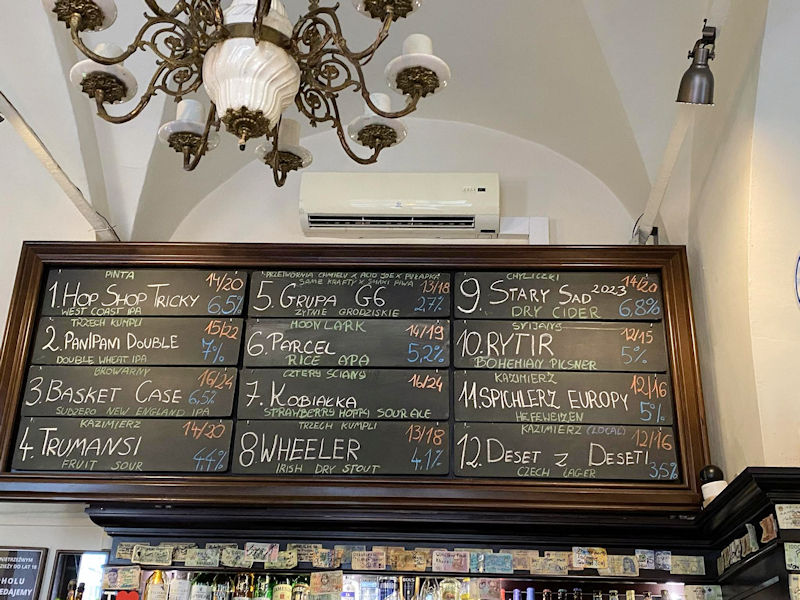 PINTA
14/20
1. HOP SHOP TRICKY 6,5%
WEST COAST IPA
TRZECH KUMPLI
15/22
2. PANIPANI DOUBLE 7%
DOUBLE WHEAT IPA
BROWARNY
16/24
3. BASKET CASE 6,5%
SUBZERO NEW ENGLAND IPA
KAZIMIERZ
14/20
4. TRUMANSI 4,4%
FRUIT SOUR
PRZETWÓRNIA CHMIELU X ACID JOE X PUŁAPKA
SAME KRAFTY X SMAKI PIWA
13/18
5. GRUPA G6 2,7%
ŻYTNIE GRODZISKIE
MOON LARK
14/19
6. PARCEL 5,2%
RICE APA
CZTERY ŚCIANY
16/24
7. KOBIAŁKA
STRAWBERRY HOPPY SOUR ALE
TRZECH KUMPLI
13/18
8 WHEELER 4,1%
IRISH DRY STOUT
CHYLICZKI
14/20
9 STARY SAD 2023 6,8%
DRY CIDER
12/15
10. RYTIR 5%
BOHEMIAN PILSNER
KAZIMIERZ
12/16
11. SPICHLERZ EUROPY 5%
HEFEWEIZEN
KAZIMIERZ (LOCAL)
12/16
12. DESET Z DESETI 3,5%
CZECH LAGER